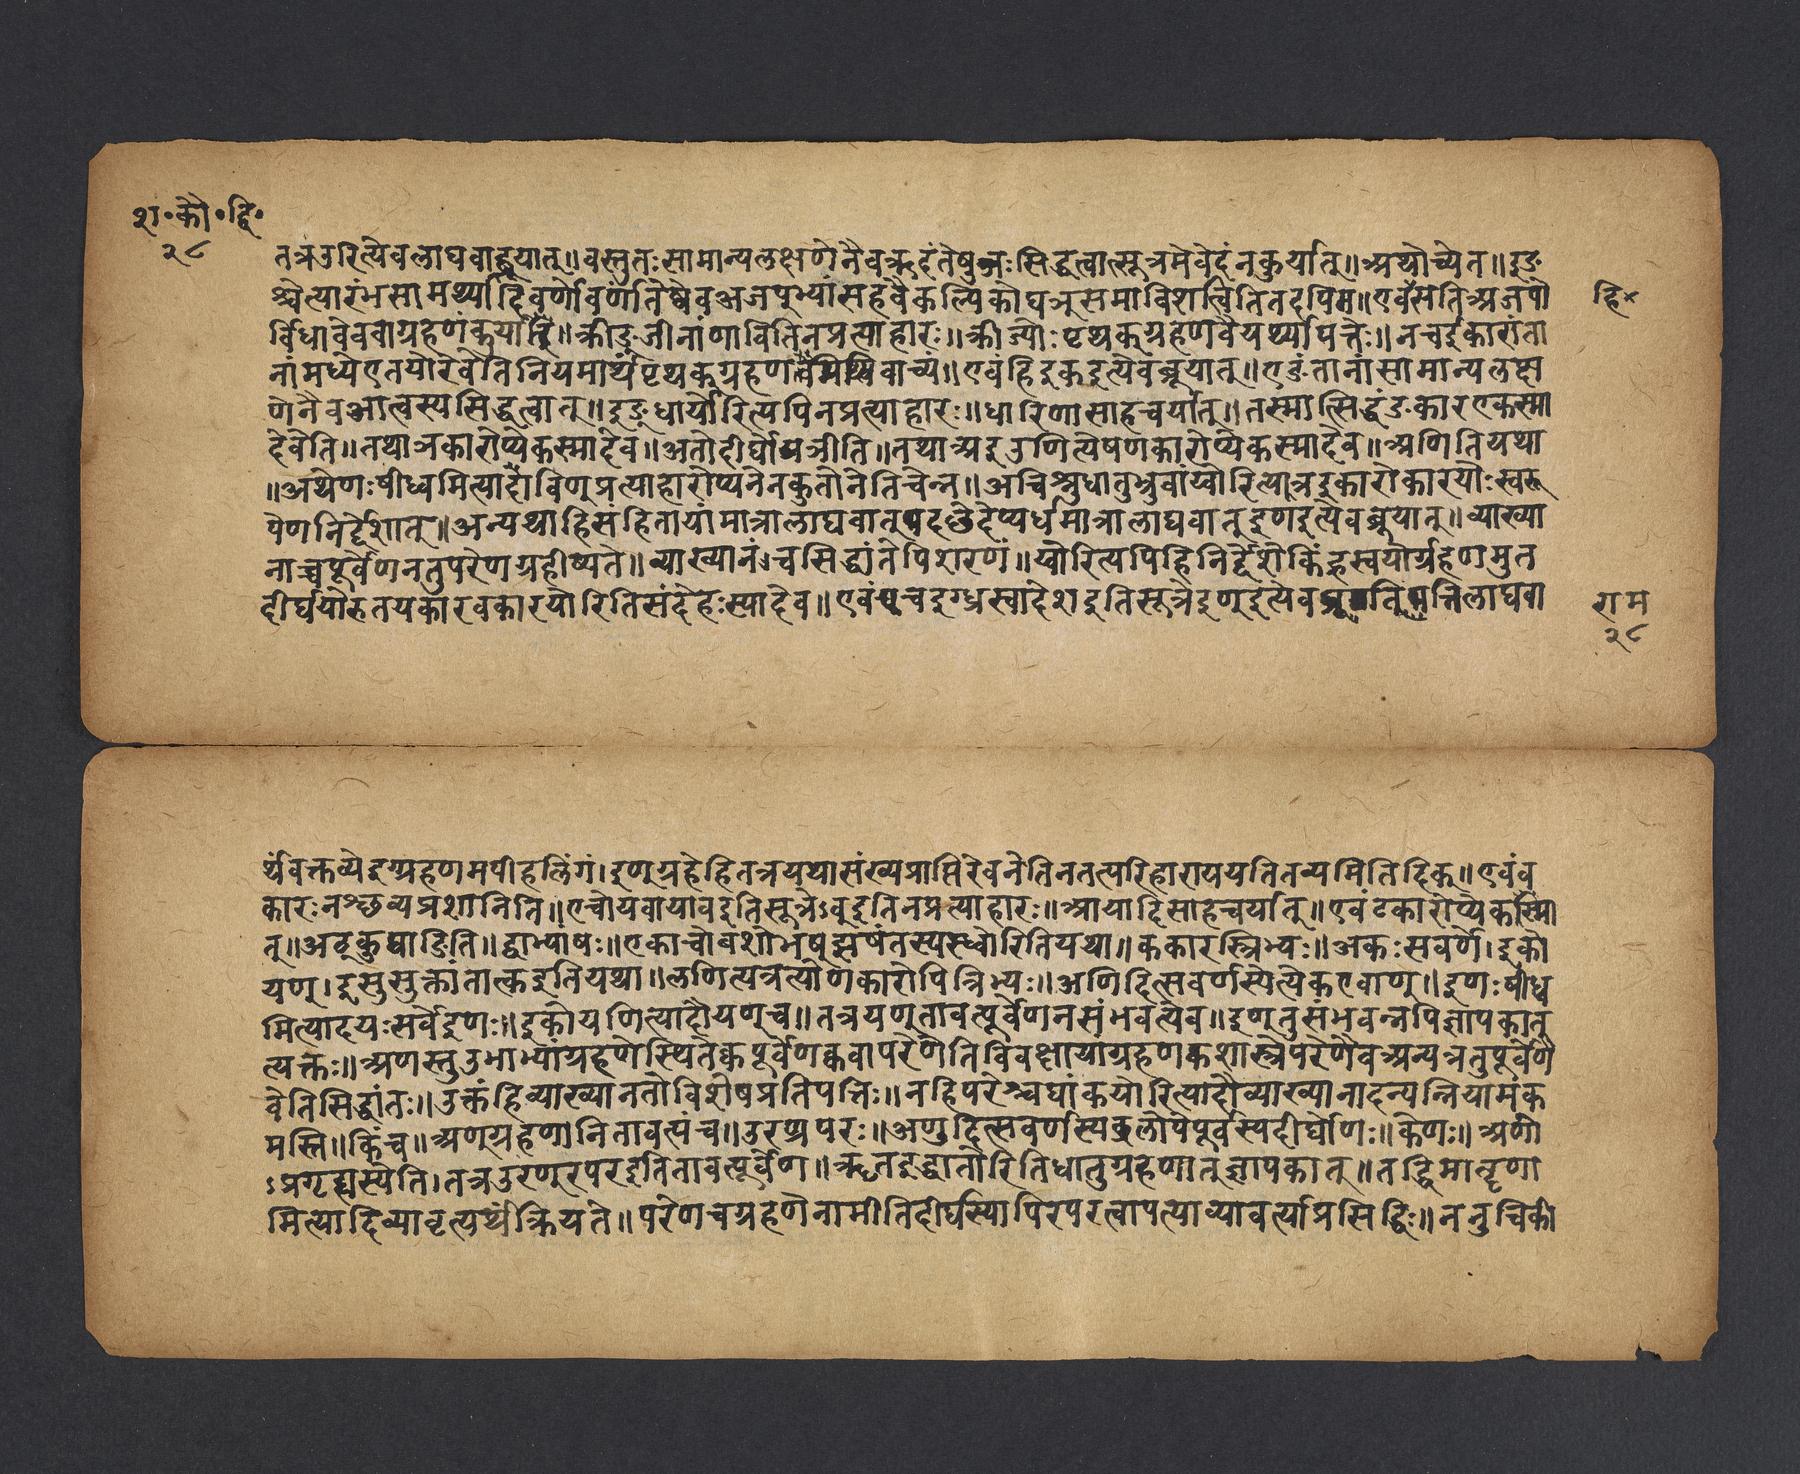 श॰कौ॰द्वि॰
२८
तत्रउरित्येवलाघवाद्ब्रूयात्॥वस्तुतःसामान्यलक्षणेनैव तेषु सिद्धत्वात्सूत्रमेवेदंनकुर्यात्॥अथोच्येत॥इङ
श्चेत्यारंभसामर्थ्याद्दिवर्णोवर्णांतेष्वेवअजपूभ्यांसहवैकल्पिकौघञ्समाविशत्वितितदपिन॥एवंसतिअजपौ
हि×
र्विधावेववाग्रहणंकुर्यात्॥क्रीङ्जीनांणावितिनप्रत्याहारः॥क्रीज्योःपृथक्ग्रहणवैयर्थ्यापत्तेः॥नचईकारांता
नांमध्येएतयोरेवेतिनियमार्थंपृथक्ग्रहण वाच्यं॥एवंहिइकइत्येवंब्रूयात्॥एङंतानांसामान्यलक्ष
णेनैवआत्वस्यसिद्धत्वात्॥इङ्धार्योरित्यपिनप्रत्याहारः॥धारिणासाहचर्यात्॥तस्मात्सिद्धंङकारएकस्मा
देवेति॥तथाञकारोप्येकस्मादेव॥अतोदीर्घोयञीति॥तथाअइउणित्येषणकारोप्येकस्मादेव॥अणितियथा
॥अथेणःषीध्वमित्यादौविण्प्रत्याहारोप्यनेनकुतोनेतिचेन्न॥अचिश्नुधातुभ्रुवांय्वोरित्यात्रइकारोकारयोःस्वरू
पेणनिर्द्देशात्॥अन्यथाहिसंहितायांमात्रालाघवात् प्यर्धमात्रालाघवात्इणइत्येवब्रूयात्॥व्याख्या
नाच्चपूर्वेणनतुपरेणग्रहीष्यते॥व्याख्यानंचसिद्धांतेपिशरणं॥य्वोरित्यपिहिनिर्द्देशेकिंह्रस्वयोर्ग्रहणमुत
दीर्घयोरुतयकारवकारयोरितिसंदेहःस्यादेव॥एवं चइग्ध्रस्वादेशइतिसूत्रेइण्इत्येव लाघवा
राम
२८
र्थंवक्तव्येइग्ग्रहणमपीहलिंगं।इण्ग्रहेहितत्रयथासंख्यप्राप्तिरेवनेतिनतत्परिहारायययतितव्यमितिदिक्॥एवंव
कारःनश्छव्यप्रशानिति॥एचोयवायावइतिसूत्रेऽवुइतिनप्रत्याहारः॥आयादिसाहचर्यात्॥एवंटकारोप्येकस्मा
त्॥अट्कुप्वाङिति॥द्वाभ्यांषः॥एकाचोबशोभष्झषंतस्यस्ध्वोरितियथा॥ककारस्त्रिभ्यः॥अकःसवर्णे।इको
यण्।इसुसुक्तांतात्कइतियथा॥लणित्यत्रत्योणकारोपित्रिभ्यः॥अणिदित्सवर्णस्येत्येकएवाण्॥इणःषीध्व
मित्यादयःसर्वेइणः॥इकोयणित्यादौयण्च॥तत्रयण्तावत्पूर्वेणनसंभवत्येव॥इण्तुसंभवन्नपिज्ञापकात्
त्यक्तः॥अणस्तुउभाभ्यांग्रहणेस्थितेक्वपूर्वेणक्ववापरेणेतिविवक्षायांग्रहणकशास्त्रेपरेणैवअन्यत्रतुपूर्वेणै
वेतिसिद्धांतः॥उक्तंहिव्याख्यानतोविशेषप्रतिपत्तिः॥नहिपरेश्चघांकयोरित्यादौव्याख्यानादन्यन्नियामंक
मस्ति॥किंच॥अण्ग्रहणानितावत्पंच॥उरण्रपरः॥अणुदित्सवर्णस्य ढ्रलोपेपूर्वस्यदीर्घोणः॥केणः॥अणो
ऽप्रगृह्यस्येति।तत्रउरण्रपरइतितावत्पूर्वेण॥ॠतइद्धातोरितिधातुग्रहणात्ज्ञापकात्॥तद्धिमातॄणा
मित्यादिव्यावृत्यर्थंक्रियते॥परेणचग्रहणेनामीतिदीर्घस्यापिरपरत्वापत्याव्यावर्त्याप्रसिद्धिः॥ननुचिकी